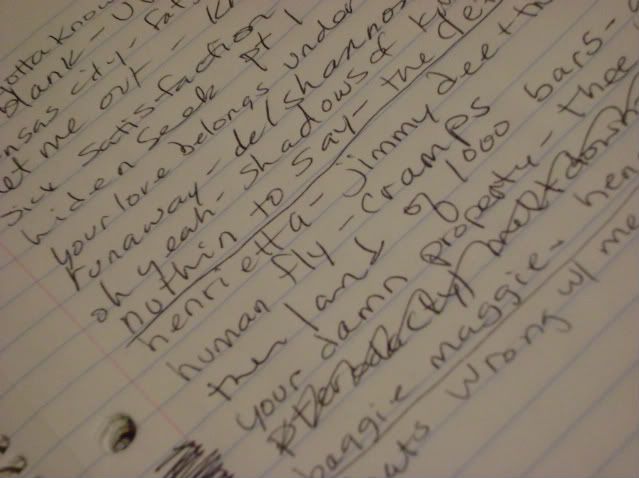 gotta know
blank -
city - fat
let me out - k
sick satisfaction
hide n seek pt 1
your love belongs under
runaway - del shannon
oh yeah - shadows of k
nothin to say - the de
henrietta - jimmy dee + th
human fly - cramps
the land of 1000 bars -
your damn property - thee
meltdown
baggie maggie - hen
ats wrong w/ me